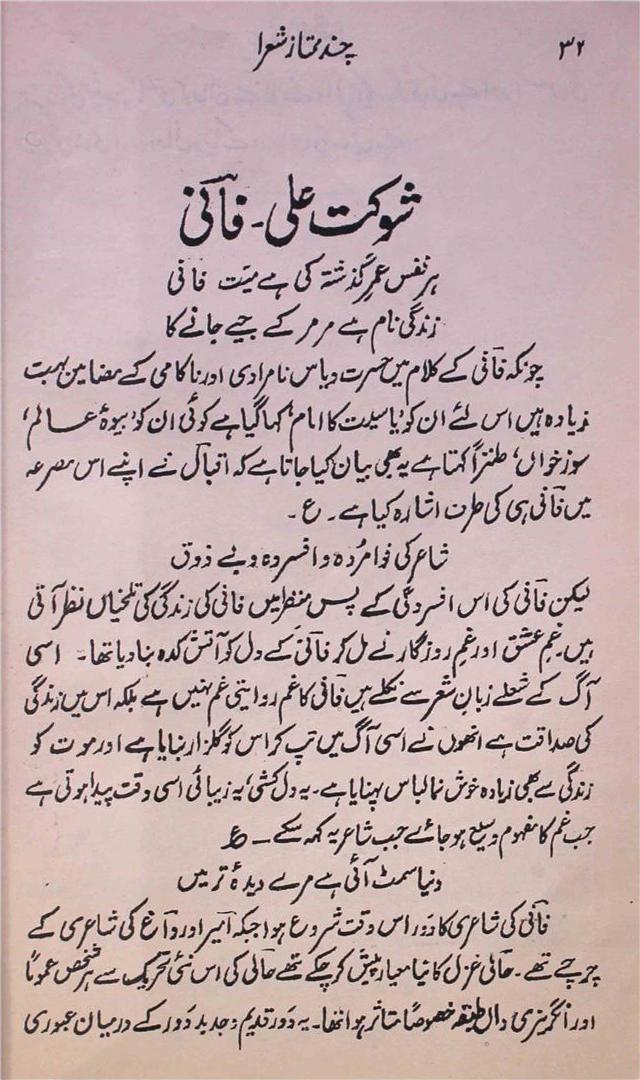 ۳۲
چند ممتاز شعرا
شوکت علی۔ فانؔی
ہر نفس عمرِ گذشتہ کی ہے میت فانی
زندگی نام ہے مرمر کے جیے جانے کا
چونکہ فانؔی کے کلام میں حسرت و یاس نامرادی اور ناکامی کے مضامین بہت
زیادہ ہیں اس لئے ان کو 'یاسیت کا امام' کہا گیا ہے کوئی ان کو 'بیوۂ عالم'
سوز خواں' طنزاً کہتا ہے یہ بھی بیان کیا جاتا ہے کہ اقباؔل نے اپنے اس مصرعہ
میں فانؔی ہی کی طرف اشارہ کیا ہے۔ ع۔
شاعر کی نوا مُردہ و افسردہ و بے ذوق
لیکن فانؔی کی اس افسردگی کے پس منظر میں فانی کی زندگی کی تلخیاں نظر آتی
ہیں۔ غمِ عشق اور غمِ روزگار نے مل کر فانؔی کے دل کو آتش کدہ بنا دیا تھا۔ اسی
آگ کے شعلے زبانِ شعر سے نکلے ہیں فانؔی کا غم روایتی غم نہیں ہے بلکہ اس میں زندگی
کی صداقت ہے انھوں نے اسی آگ میں تپ کر اس کو گلزار بنایا ہے اور موت کو
زندگی سے بھی زیادہ خوش نما لباس پہنایا ہے۔ یہ دل کشی' یہ زیبائی اسی وقت پیدا ہوتی ہے
جب غم کا مفہوم وسیع ہو جائے جب شاعر یہ کہہ سکے۔ ع
دنیا سمٹ آئی ہے مرے دیدۂ تر میں
فانؔی کی شاعری کا دَور اس وقت شروع ہوا جبکہ امؔیر اور داؔغ کی شاعری کے
چرچے تھے۔ حاؔلی غزل کا نیا معیار پیش کر چکے تھے حاؔلی کی اس نئی تحریک سے ہر شخص عموماً
اور انگریزی داں طبقہ خصوصاً متاثر ہوا تھا۔ یہ دَور قدیم و جدید دَور کے درمیان عبوری